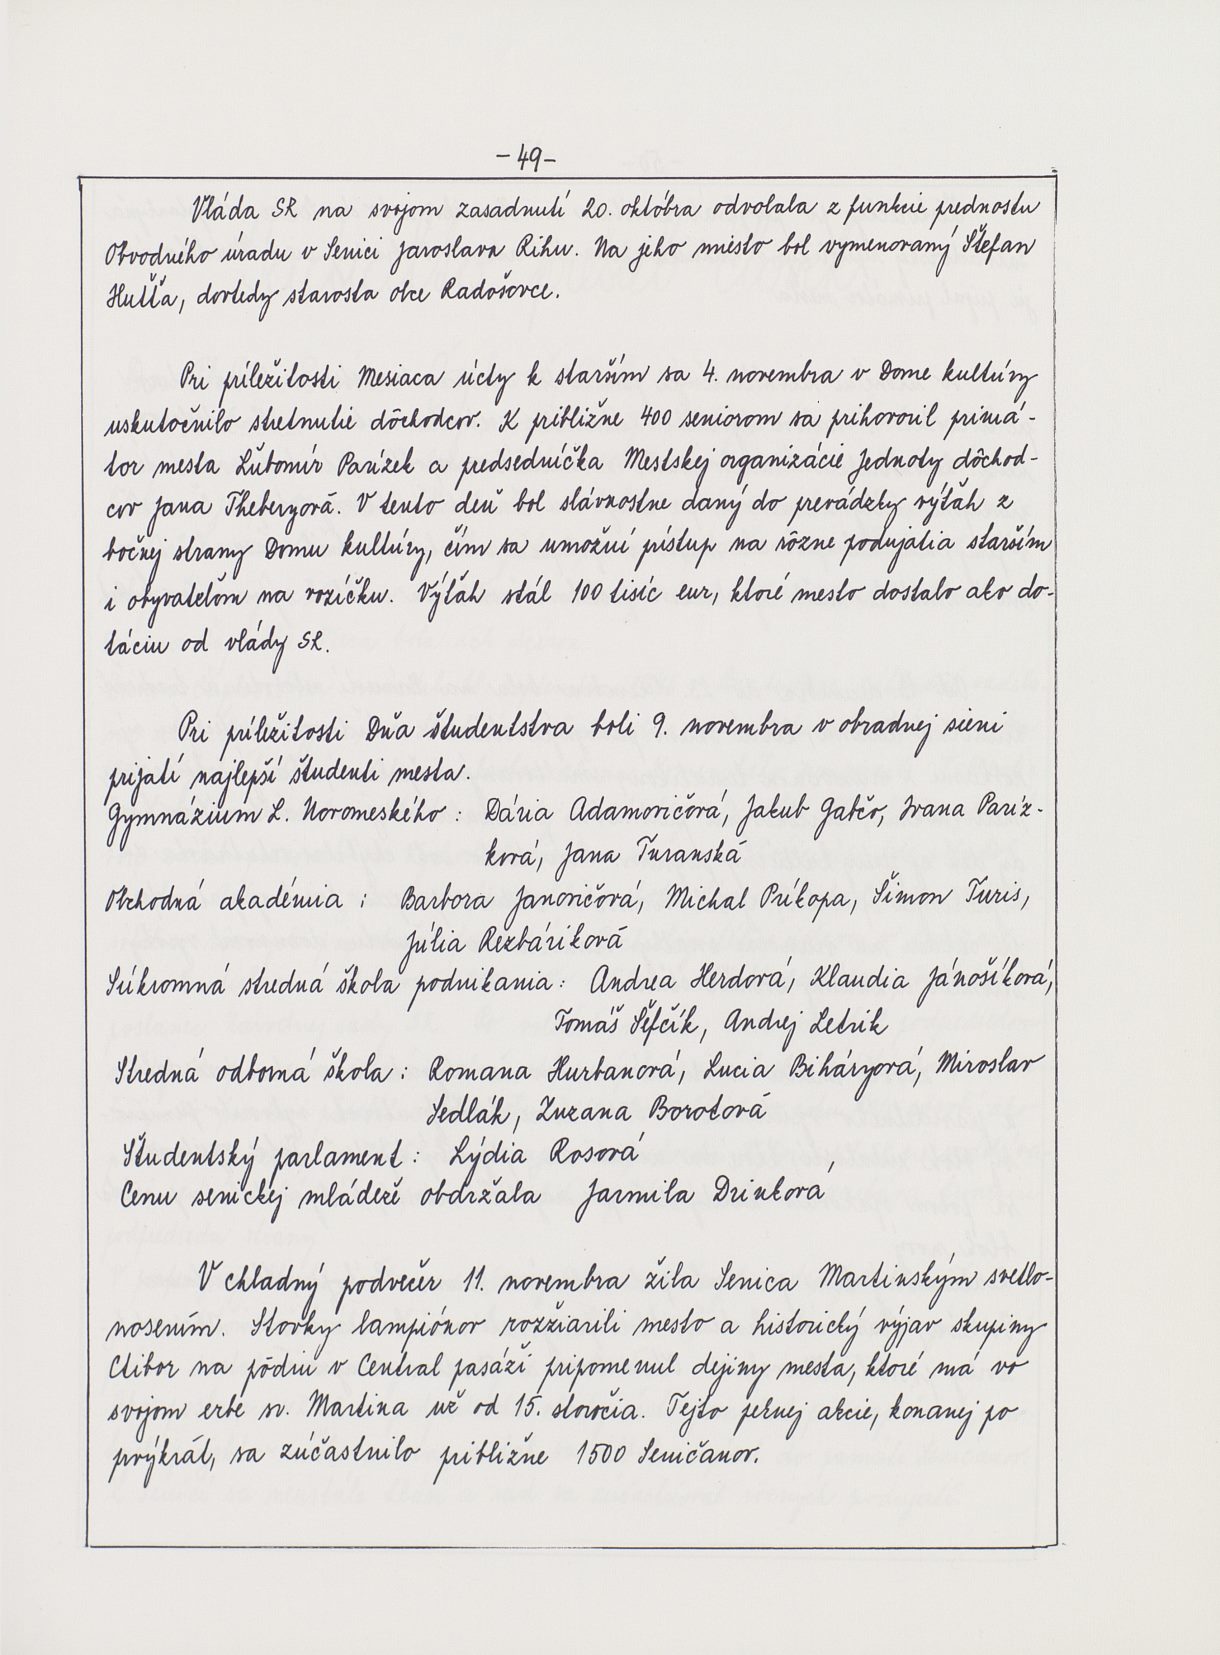 -49-
Vláda SR na svojom zasadnutí 20. októbra odvolala z funkcie prednostu
Obvodného úradu v Senici Jaroslava Rihu. Na jeho miesto bol vymenovaný Štefan
Hutťa, dovtedy starosta obce Radošovce.
Pri príležitosti Mesiaca úcty k starším sa 4. novembra v Dome kultúry
uskutočnilo stretnutie dôchodcov. K približne 400 seniorom sa prihovoril primá-
tor mesta Ľubomír Parízek a predsedníčka Mestskej organizácie Jednoty dôchod-
cov Jana Theberyová. V tento deň bol slávnostne daný do prevádzky výťah z
bočnej strany Domu kultúry, čím sa umožní prístup na rôzne podujatia starším
i obyvateľom na vozíčku. Výťah stál 100 tisíc eur, ktoré mesto dostalo ako do-
táciu od vlády SR.
Pri príležitosti Dňa študentstva boli 9. novembra v obradnej sieni
prijatí najlepší študenti mesta.
Gymnázium L. Novomeského : Dária Adamovičová, Jakub Gabčo, Ivana Paríz-
ková, Jana Turanská
Obchodná akadémia : Barbora Janovičová, Michal Príkopa, Šimon Turis,
Júlia Rezbáriková
Súkromná stredná škola podnikania : Andrea Herdová, Klaudia Jánošíková,
Tomáš Šefčík, Andrej Letrik
Stredná odborná škola : Romana Hurbanová, Lucia Biháryová, Miroslav
Sedlák, Zuzana Borotová
Študentský parlament : Lýdia Rosová
Cenu senickej mládeže obdržala Jarmila Drinková
V chladný podvečer 11. novembra žila Senica Martinským svetlo-
nosením. Stovky lampiónov rozžiarili mesto a historický výjav skupiny
Ctibor na pódiu v Central pasáži pripomenul dejiny mesta, ktoré má vo
svojom erbe sv. Martina už od 15. storočia. Tejto peknej akcie, konanej po
prvýkrát, sa zúčastnilo približne 1500 Seničanov.